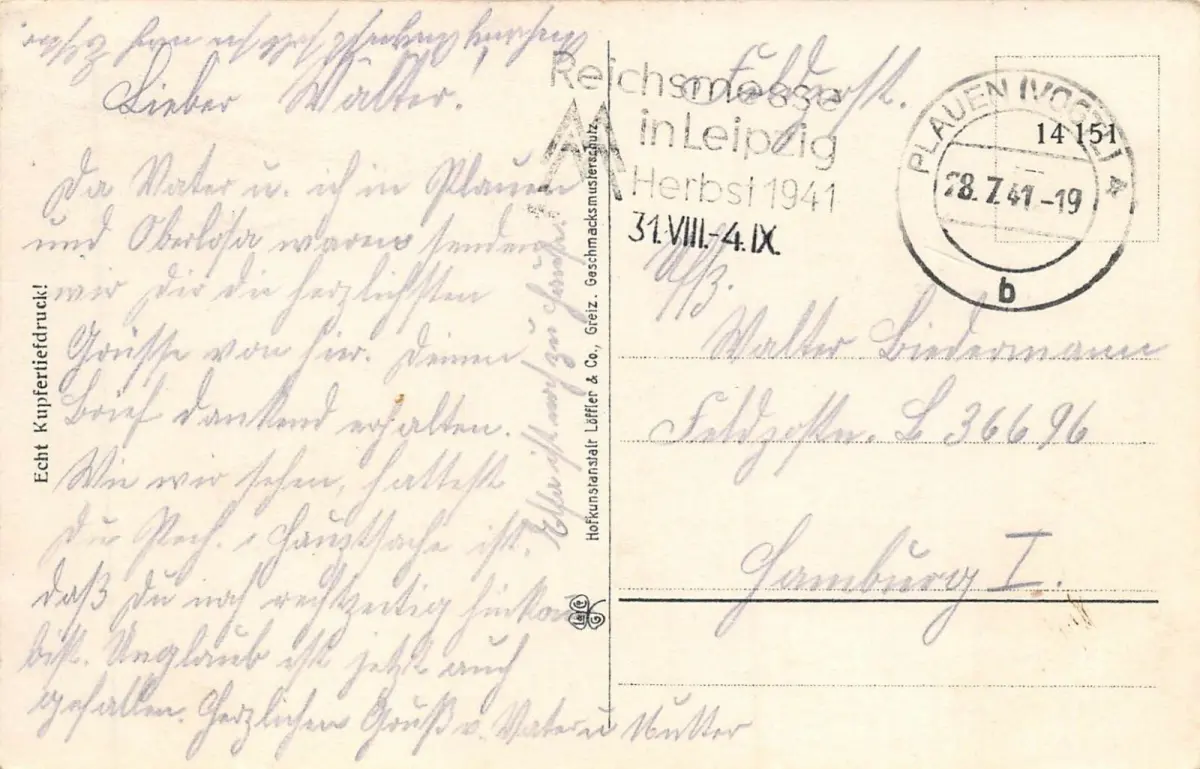 Lieber Walter.
Da Vater u. ich in Plauen
und Oberlosa waren senden
wir Dir die herzlichsten
Grüsse von hier. Deinen
Brief dankend erhalten.
Wie wir sehen, hattest
Du Pech. Hauptsache ist.
daß Du noch rechtzeitig
bist. ist jetzt auch
gefallen. Herzlichen Gruß v. Vater u Mutter
ist noch zu Hause.
Echt Kupfertiefdruck!
Hofkunstanstalt Löffler & Co., Greiz. Geschmacksmusterschutz
L & C
G
Feldpost.
Reichsmesse
in Leipzig
Herbst 1941
31.VIII.-4.IX.
PLAUEN (VOGTL) A
28.7.41-19
b
14 151
Uffz.
Walter Biedermann
Feldpostnr. L 36696
Hamburg I.